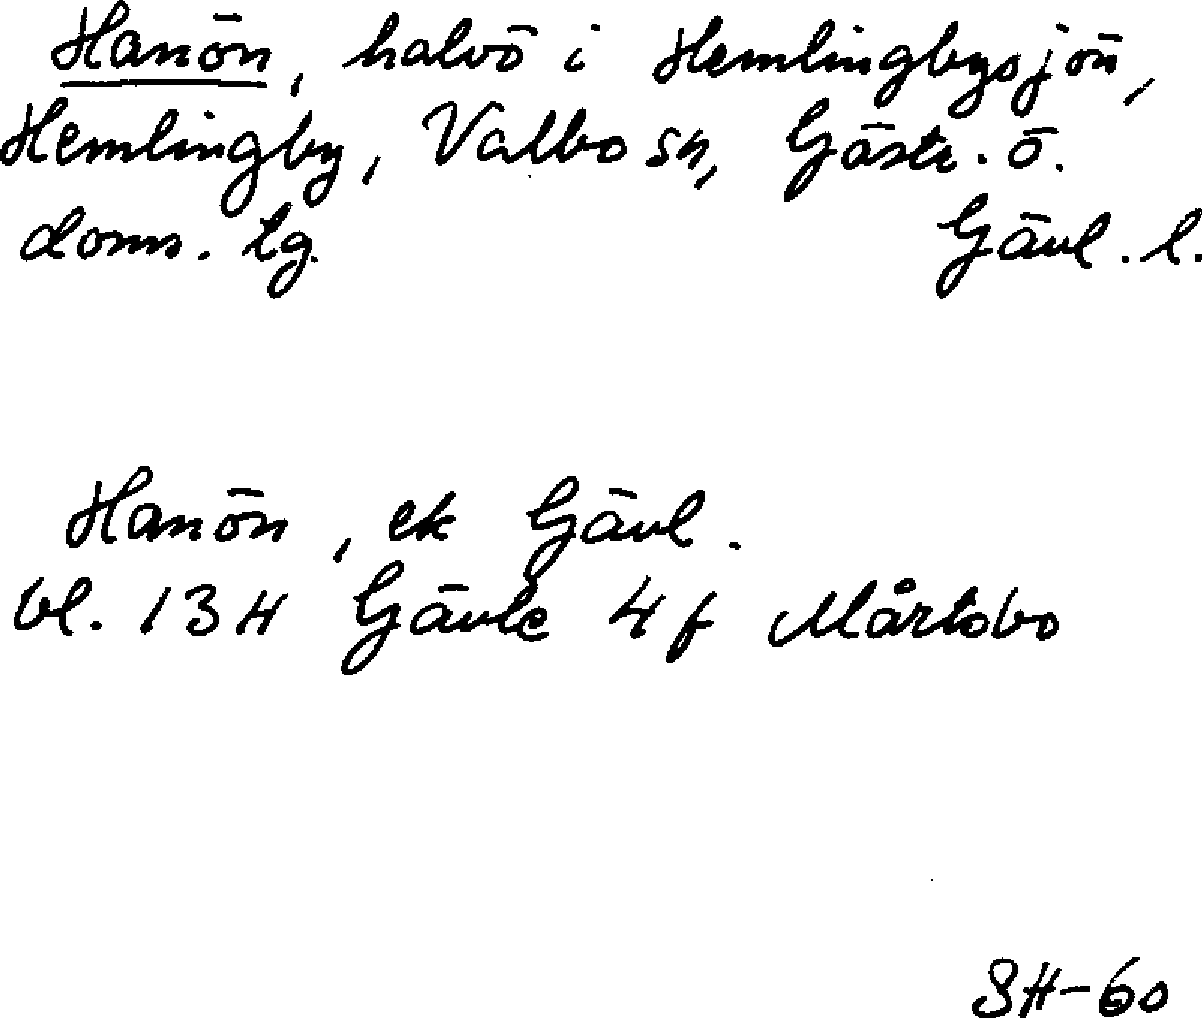 Hanön, halvö i Hemlingbysjön,
Hemlingby, Valbo sn, Gästr. ö.
doms. tg. Gävl. l.
Hanön, ek Gävl.
bl. 13H Gävle 4f Mårtsbo
SH-60